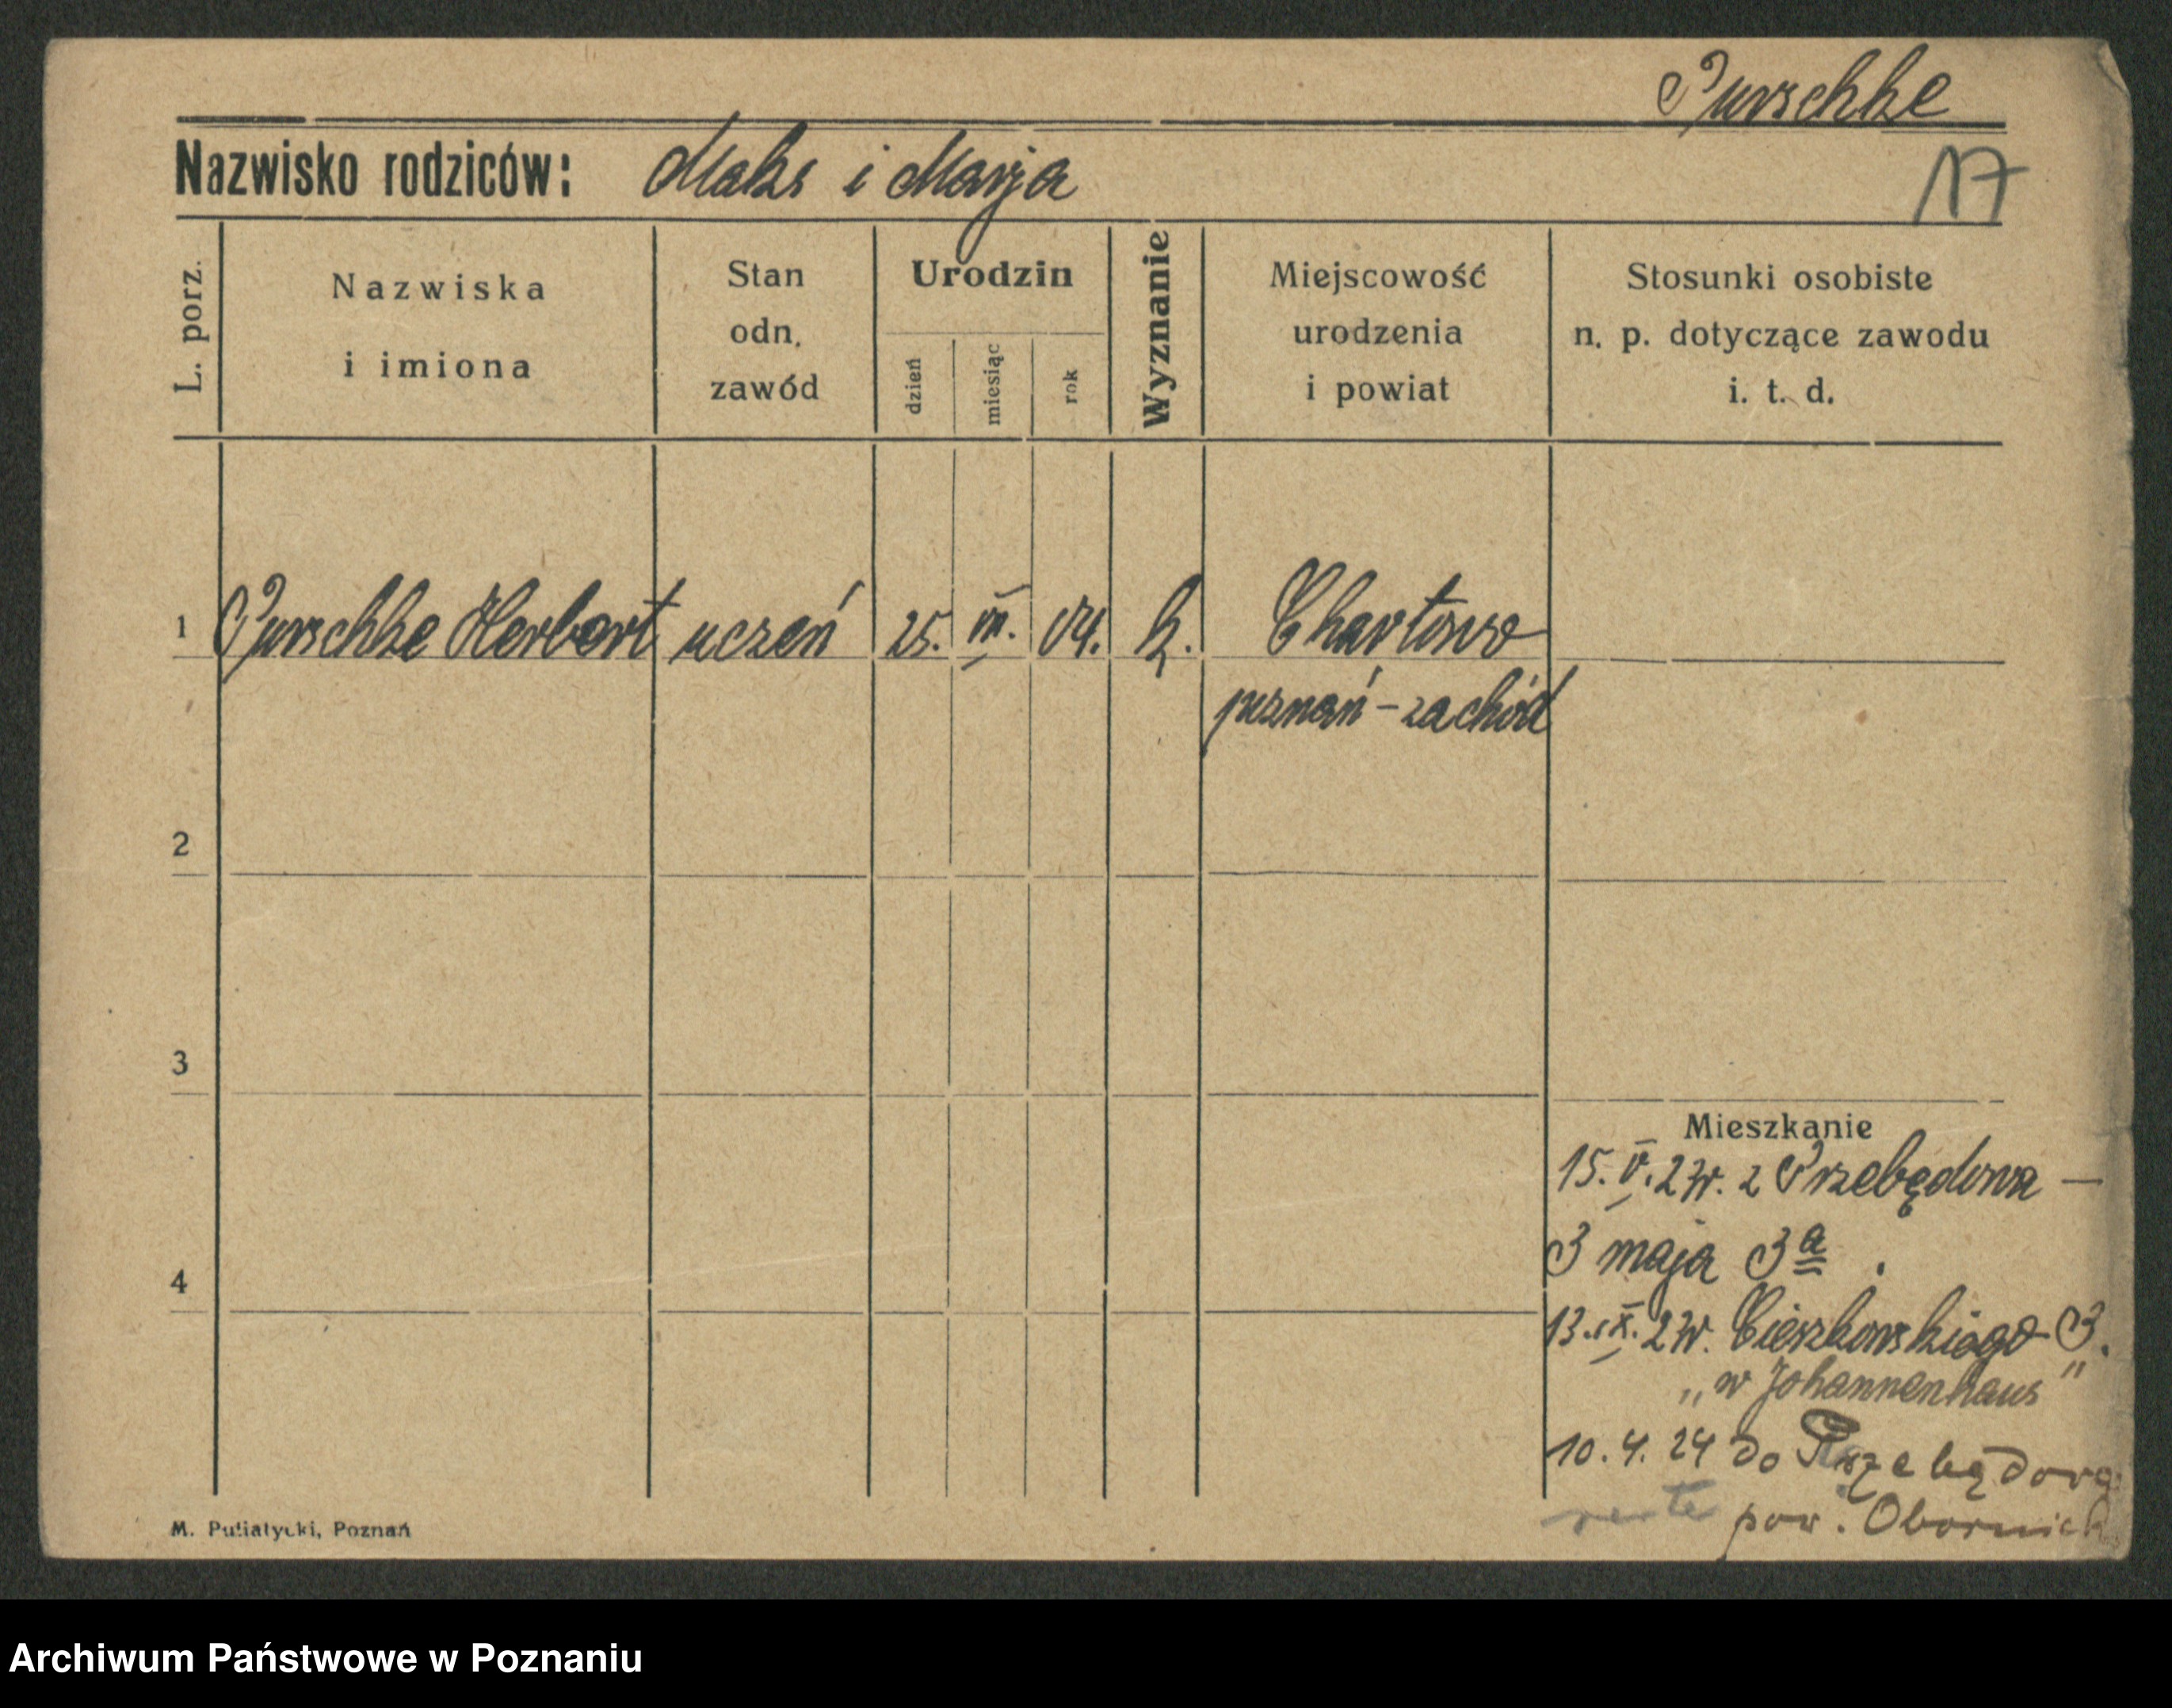 Purschke
Nazwisko rodziców: Maks i Marja
17
L. porz.
Nazwiska
i imiona
Stan
odn.
zawód
Urodzin
dzień
miesiąc
rok
Wyznanie
Miejscowość
urodzenia
i powiat
Stosunki osobiste
n. p. dotyczące zawodu
i. t. d.
1 Purschke Herbert uczeń 25. VII. 04. k. Chartowo
poznań-zachód
2
3
4
Mieszkanie
15. V. 23r. z Przebędowa —
3 maja 3a.
13. IX. 23r. Cieszkowskiego 3.
„w Johannenhaus"
10. 4. 24 do Przebędowa
pow. Obornick
M. Putiatycki, Poznań
Archiwum Państwowe w Poznaniu